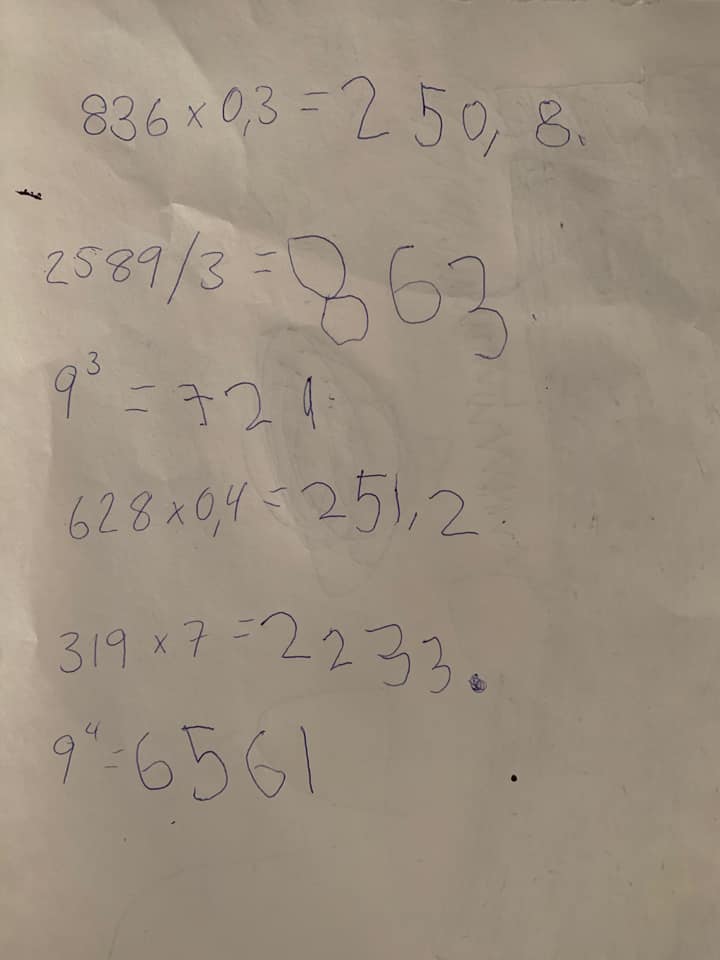 836 x 0,3 = 250,8.
2589/3 = 863.
9³ = 729.
628 x 0,4 = 251,2.
319 x 7 = 2233.
9⁴ = 6561